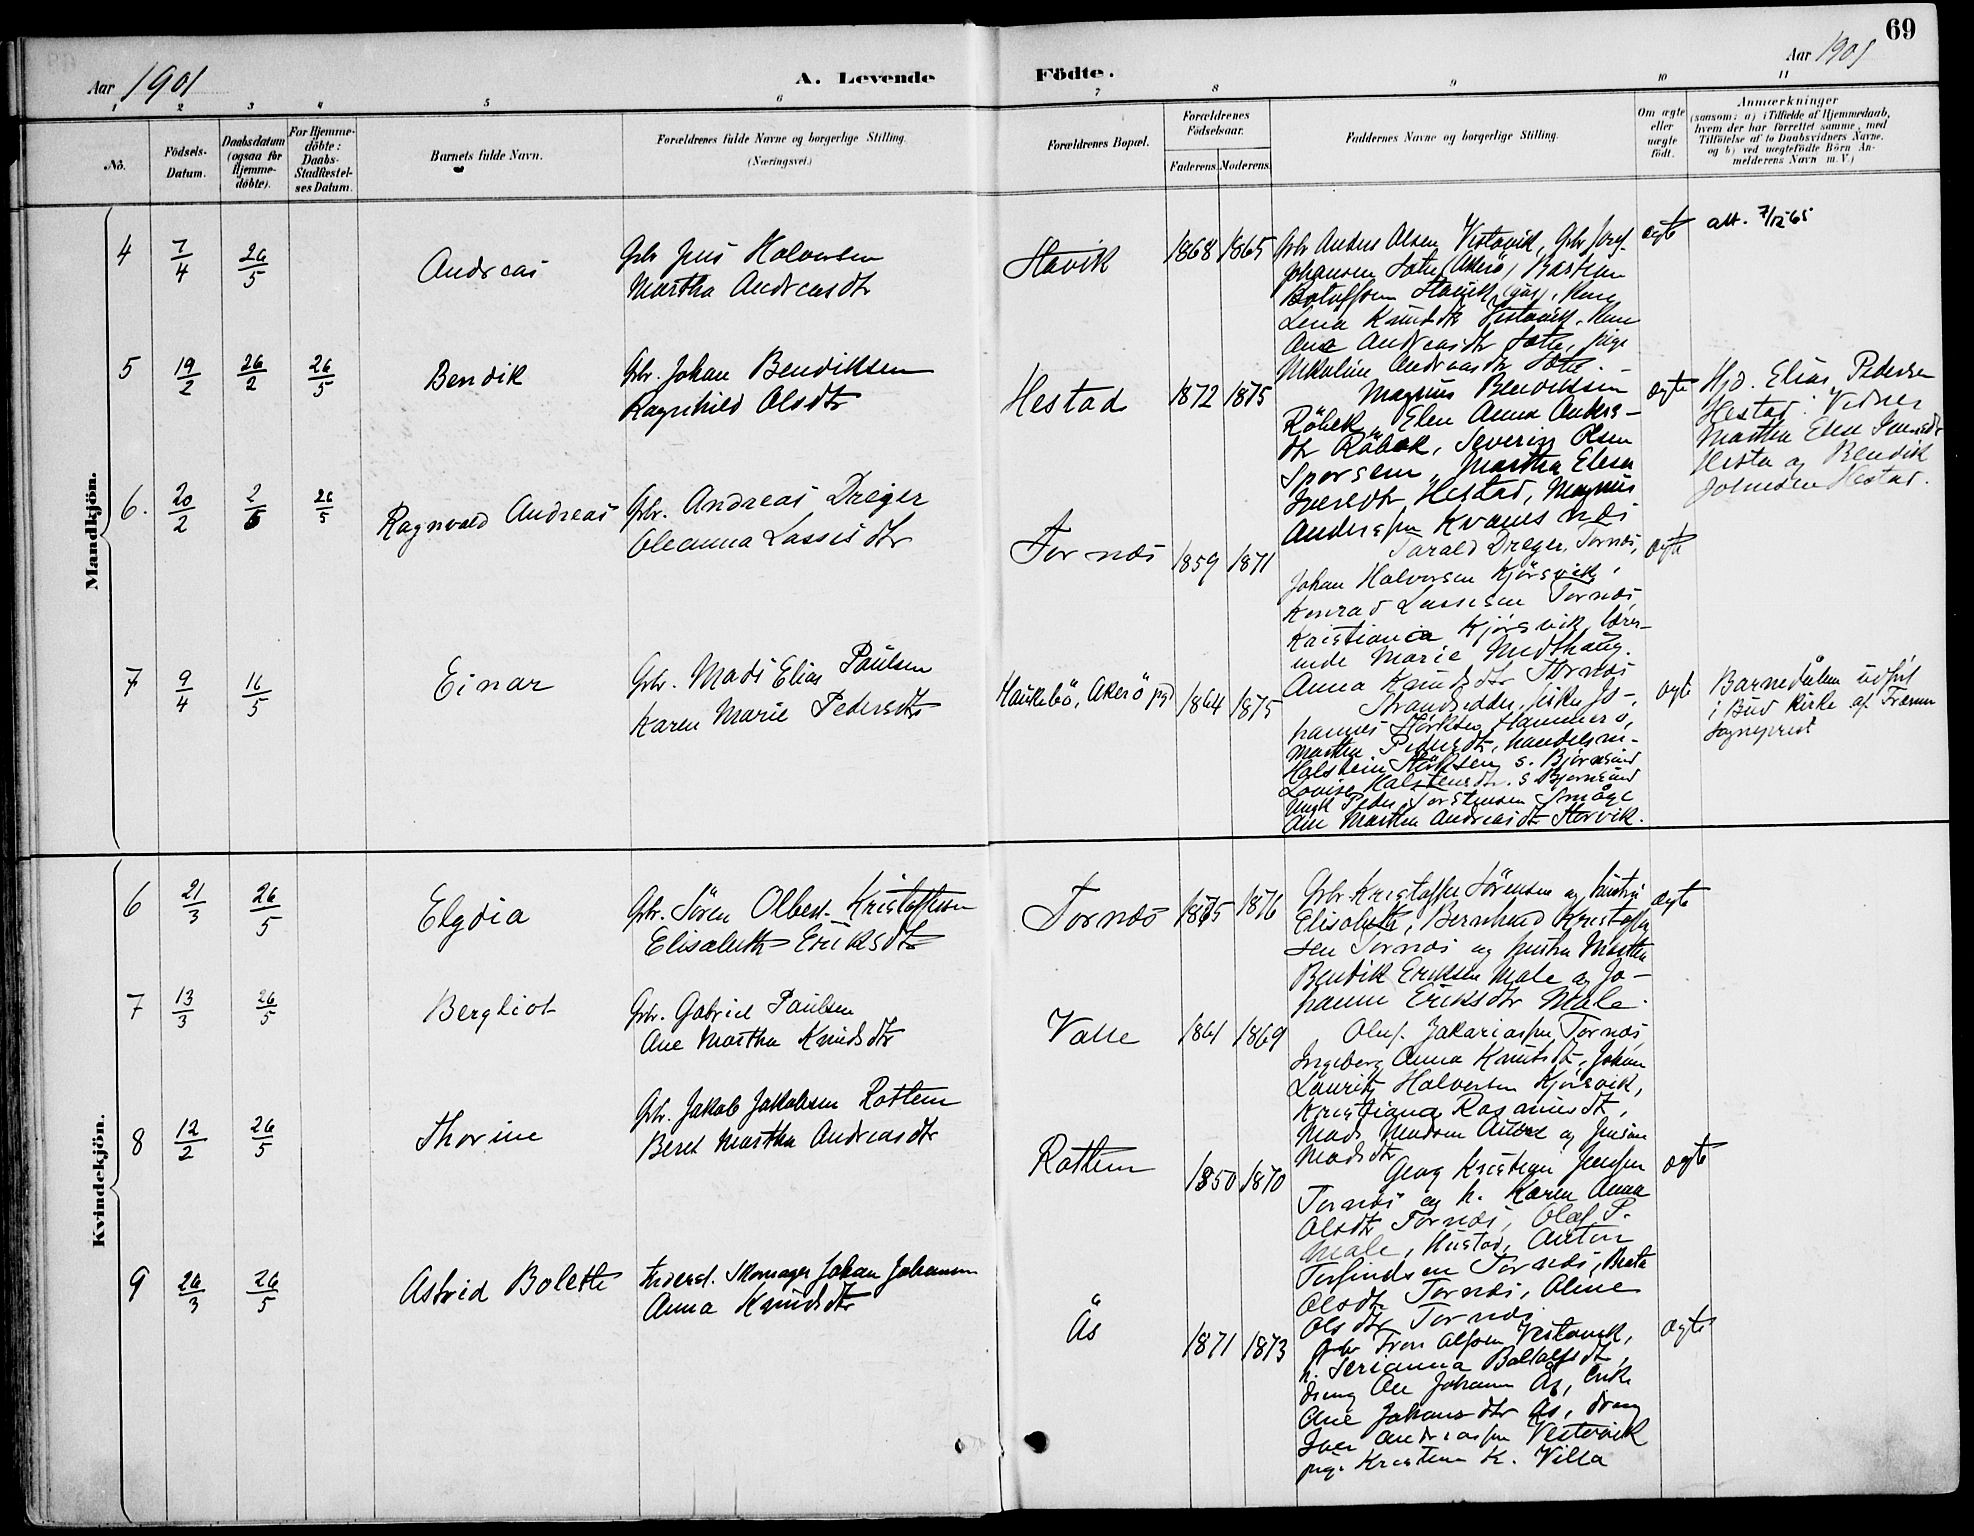 69
Aar 1901
A. Levende Födte.
Aar 1901
1 2 3 4 5 6 7 8 9 10 11
No.
Födsels-Datum.
Daabsdatum (ogsaa for Hjemme-döbte).
For Hjemme-döbte: Daabs-Stadfæstel-ses Datum.
Barnets fulde Navn.
Forældrenes fulde Navne og borgerlige Stilling. (Næringsvei.)
Forældrenes Bopæl.
Forældrenes Födselsaar.
Faderens. Moderens.
Faddernes Navne og borgerlige Stilling.
Om ægte eller uægte födt.
Anmærkninger
(saasom: a) i Tilfælde af Hjemmedaab,
hvem der har forrettet samme, med
Tilföielse af to Daabsvidners Navne.
og b) ved uægtefödte Börn An-
melderens Navn m. V.)
Mandkjön.
4 7/4 26/5 Andreas
Gbr Jens Halvorsen
Martha Andreasdtr
Stavik 1868 1865
Gbr Anders Olsen Vestavik, Gbr Josef
Johansen Sætre (Akerö) Bastian
Lena Knudsdtr Vestavik. Kone
Ane Andreasdtr Sætre, pige
Nikoline Andreasdtr Sætre.
ægte
att. 7/12 65
5 19/2 26/2 26/5 Bendik
Gbr. Johan Bendiksen
Ragnhild Olsdtr
Hestad 1872 1875
Magnus Bendiksen
Röbek, Elen Anna Anders-
dtr Röbek, Severin Olsen
Sporsem, Martha Elen
Iversdtr Hestad, Magnus
Anderssen Kvamsnæs
ægte
Hjd. Elias Pedersen
Hestad. Vidner
Martha Elen Iversdtr
Hestad og Bendik
Johnsen Hestad.
6. 20/2 2/6 26/5 Ragnvald Andreas
Gbr. Andreas Dreyer
Oleanna Lassesdtr
Tornæs 1859 1871
Tarald Dreyer, Tornæs,
Johan Halvorsen Kjörsvik,
Konrad Lassesen Tornæs
Kristiania Kjörsvik, lærer-
inde Marie Midthaug.
Anna Knudsdtr Tornæs
ægte
7 9/4 16/5 Einar
Gbr. Mads Elias Paulsen
Karen Marie Pedersdtr
Haukebö, Akerö pgd 1864 1875
Strandsidder, fisker Jo-
hannes Störksen Hammerö,
Martha Pedersdtr, handelsm.
Halstein Störksen s. Björnsund
Louise Halstensdtr. s Bjørnsund
Ungk Peder Torstensen Småge
Ane Martha Andreasdtr Storvik.
ægte
Barnedåben udført
i Bud kirke af Fræena
sogneprest
Kvindekjön.
6 21/3 26/5 Elgdia
Gbr. Sören Olbert. Kristoffersen
Elisabeth Eriksdtr
Tornæs 1875 1876
Gbr. Kristoffer Sörensen og hustru
Elisabeth, Bernhard Kristoffer
sen Tornæs og hustru Martha
Bendik Eriksen Male og Jo-
hanne Eriksdtr Male.
ægte
7 13/3 26/5 Bergliot
Gbr. Gabriel Paulsen
Ane Martha Knudsdtr
Valle 1861 1869
Oluf Zakariassen Tornæs,
Ingeborg Anna Knutsdtr, Johan
Lauritz Halvorsen Kjörsvik,
Kristiana Rasmusdtr,
Mads Madsen og
Madsdtr
8 12/2 26/5 Thorine
Gbr. Jakob Jakobsen Rottem
Beret Martha Andreasdtr
Rottem 1850 1870
Georg Kristian Jenssen
Tornæs og h. Karen Anna
Olsdtr Tornæs, Olaf P.
Male, Hustad, Anton
Torfindsen Tornæs, Berte
Olsdtr Tornæs, Oline
Olsdtr Tornæs
ægte
9 26/3 26/5 Astrid Bolette
Inderst. Skomager Johan Johansen
Anna Knudsdtr
Ås 1871 1873
Gbr Iver Olsen Vestavik,
h. Serianna
dreng Ole Johansen Ås, Enke
Ane Johansdtr Ås, dreng
Iver Andreassen Vestavik
pige Kristine K. Villa
ægte